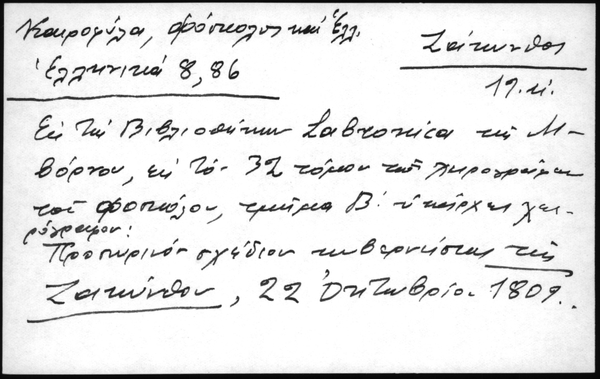 Καιροφύλα, Φόσκολος καὶ Ἑλλ.
Ἑλληνικά 8, 86
Ζάκυνθος
19. αἰ.
Εἰς τὴν Βιβλιοθήκην Labronica τῆς Λι-
βόρνου, εἰς τὸν 32 τόμον τῶν χειρογράφων
τοῦ Φοσκόλου, τμῆμα Β΄ ὑπάρχει χει-
ρόγραφον:
Προσωρινὸν σχέδιον κυβερνήσεως τῆς
Ζακύνθου, 22 Ὀκτωβρίου 1809.